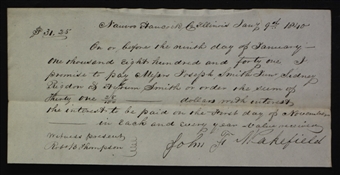 Nauvoo Hancock Co Illinois Jany 9th 1840
$31.25
On or before the ninth day of January
one thousand eight hundred and forty one I
promise to pay Messrs Joseph Smith Jun Sidney
Rigdon & Hyrum Smith or order the sum of
Thirty one 25/100 dollars with interest
the interest to be paid on the first day of November
in each and every year Value received
Witness present
Rob B. Thompson
John F Wakefield